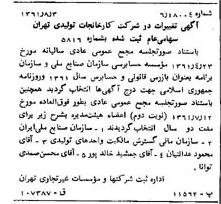 شماره ۶/۱۸۰۰۴ ۱۳۶۱/۸/۳
آگهی تغییرات در شرکت کارخانجات تولیدی تهران
سهامی‌عام ثبت شده بشماره ۵۸۱۶
باستناد صورتجلسه مجمع عمومی عادی سالیانه مورخ
۱۳۶۱/۴/۲۳ مؤسسه حسابرسی سازمان صنایع ملی و سازمان
برنامه بعنوان بازرس قانونی و حسابرس سال ۱۳۶۱ و روزنامه
جمهوری اسلامی جهت درج آگهی‌ها انتخاب گردید همچنین
باستناد صورتجلسه مجمع عمومی عادی بطور فوق‌العاده مورخ
۱۳۶۱/۷/۱۲ (نوبت دوم) اعضاء هیئت‌مدیره بشرح زیر برای
مدت دو سال انتخاب گردیدند ۱ـ سازمان صنایع ملی ایران
۲ـ سازمان مالی گسترش مالکیت واحدهای تولیدی ۳ـ آقای
محمود عدالتیان ۴ـ آقای جمشید خالدپور ۵ـ آقای محسن صمدی
توانائی.
اداره ثبت شرکتها و مؤسسات غیرتجاری تهران
پ-۱۱۵۶۲ ق-۱۰۷۳۸۷